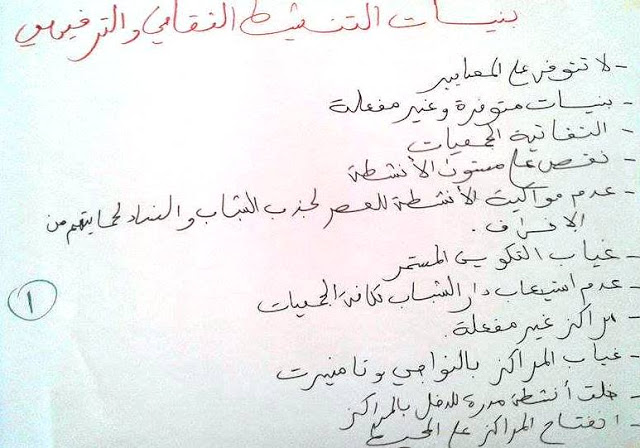 بنيات التنشيط الثقافي والترفيهي
- لا تتوفر على المعايير
- بنيات متوفرة وغير مفعلة
- التفاتية الجمعيات
- نقص على مستوى الأنشطة
- عدم مواكبة الأنشطة للعصر لجذب الشباب والنساء لحمايتهم من
الانحراف .
- غياب التكوين المستمر
- عدم استيعاب دار الشباب لكافة الجمعيات
- مراكز غير مفعلة .
- غياب المراكز بالنواحي وتامنيرت
- خلق أنشطة مدرة للدخل بالمراكز
- انفتاح المراكز على المحيط
1